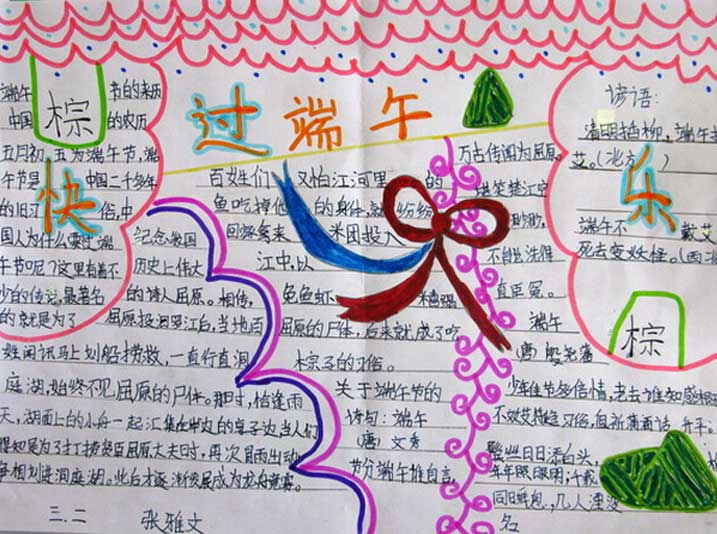 过端午
快
乐
棕
棕
端午节的来历
中国的农历
五月初五为端午节,端
午节是中国二千多年
的旧习俗,中
国人为什么要过端
午节呢?这里有着不
少的传说,最著名
的就是为了
纪念我国
历史上伟大
的诗人屈原。相传,
屈原投汨罗江后,当地百
姓闻讯马上划船捞救,一直行直洞
庭湖,始终不见屈原的尸体。那时,恰逢雨
天,湖面上的小舟一起汇集在岸边的亭子边,当人们
得知是为了打捞贤臣屈原大夫时,再次冒雨出动
争相划进洞庭湖。此后才逐渐发展成为龙舟竞赛。
三.二 张雅文
百姓们又怕江河里的
鱼吃掉他的身体,就纷纷
回家拿来米团投入
江中,以
鱼鱼虾糟蹋
屈原的尸体,后来就成了吃
棕子的习俗。
关于端午节的
诗句:端午
(唐)文秀
节分端午推自言,
万古传闻为屈原。
堪笑楚江空
渺渺,
不能洗得
直臣冤。
端午
(唐)殷尧藩
少年佳节多倍情,老去谁知感慨
不效艾符趋习俗,但祈蒲酒话升平。
鬓丝日日添白头,
年年照眼明;千载
同日醉息,几人湮没
名
谚语:
清明插柳,端午
艾。(北方)
端午不戴艾
死去变妖怪。